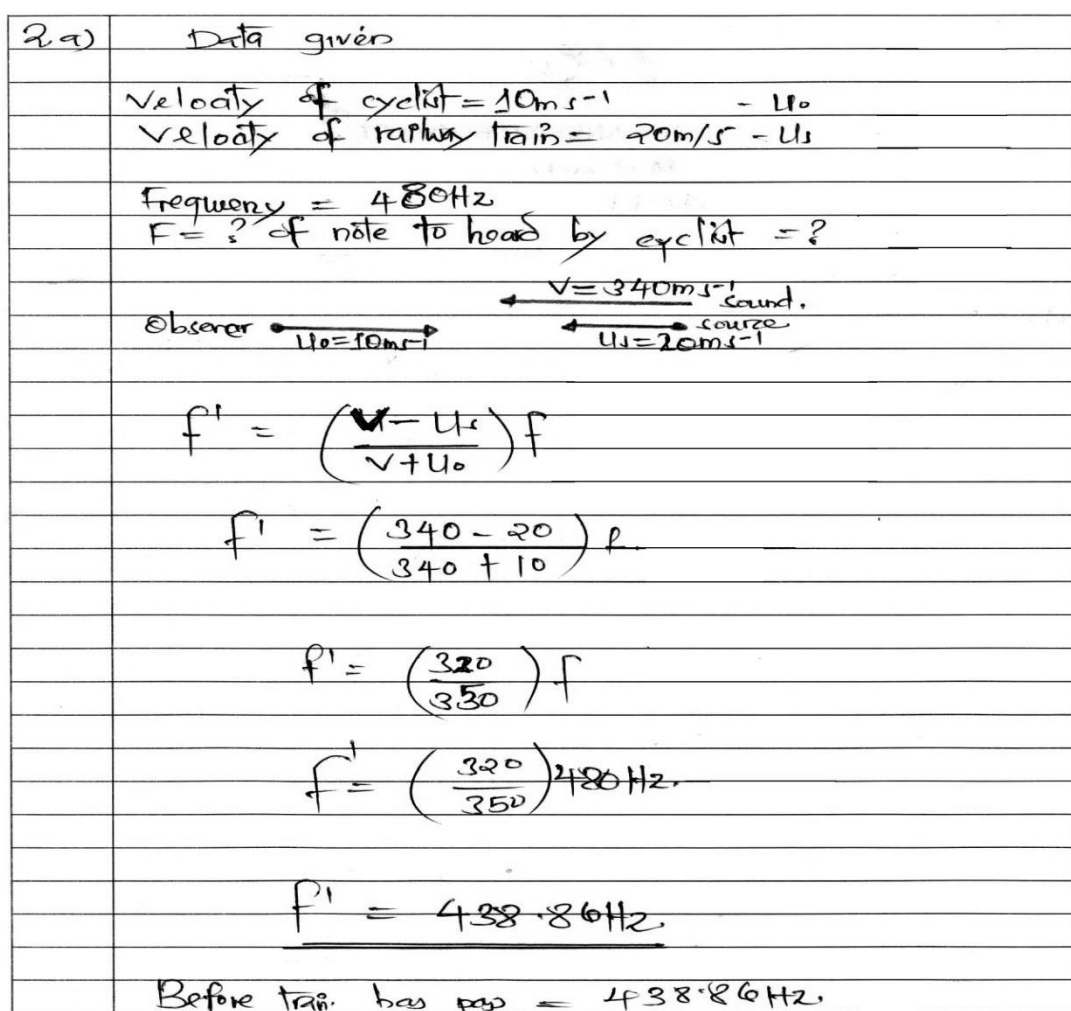 2.a) Data given
Velocity of cyclist = 10ms⁻¹ - U₀
Velocity of railway train = 20m/s - Us
Frequency = 480Hz
F = ? of note to heard by cyclist = ?
V = 340ms⁻¹ sound.
Observer U₀=10ms⁻¹ Us=20ms⁻¹ source
f' = (V - Us / V + U₀) f
f' = (340 - 20 / 340 + 10) f.
f' = (320 / 350) f
f' = (320 / 350) 480Hz.
f' = 438.86Hz
Before train has pass = 438.86Hz.